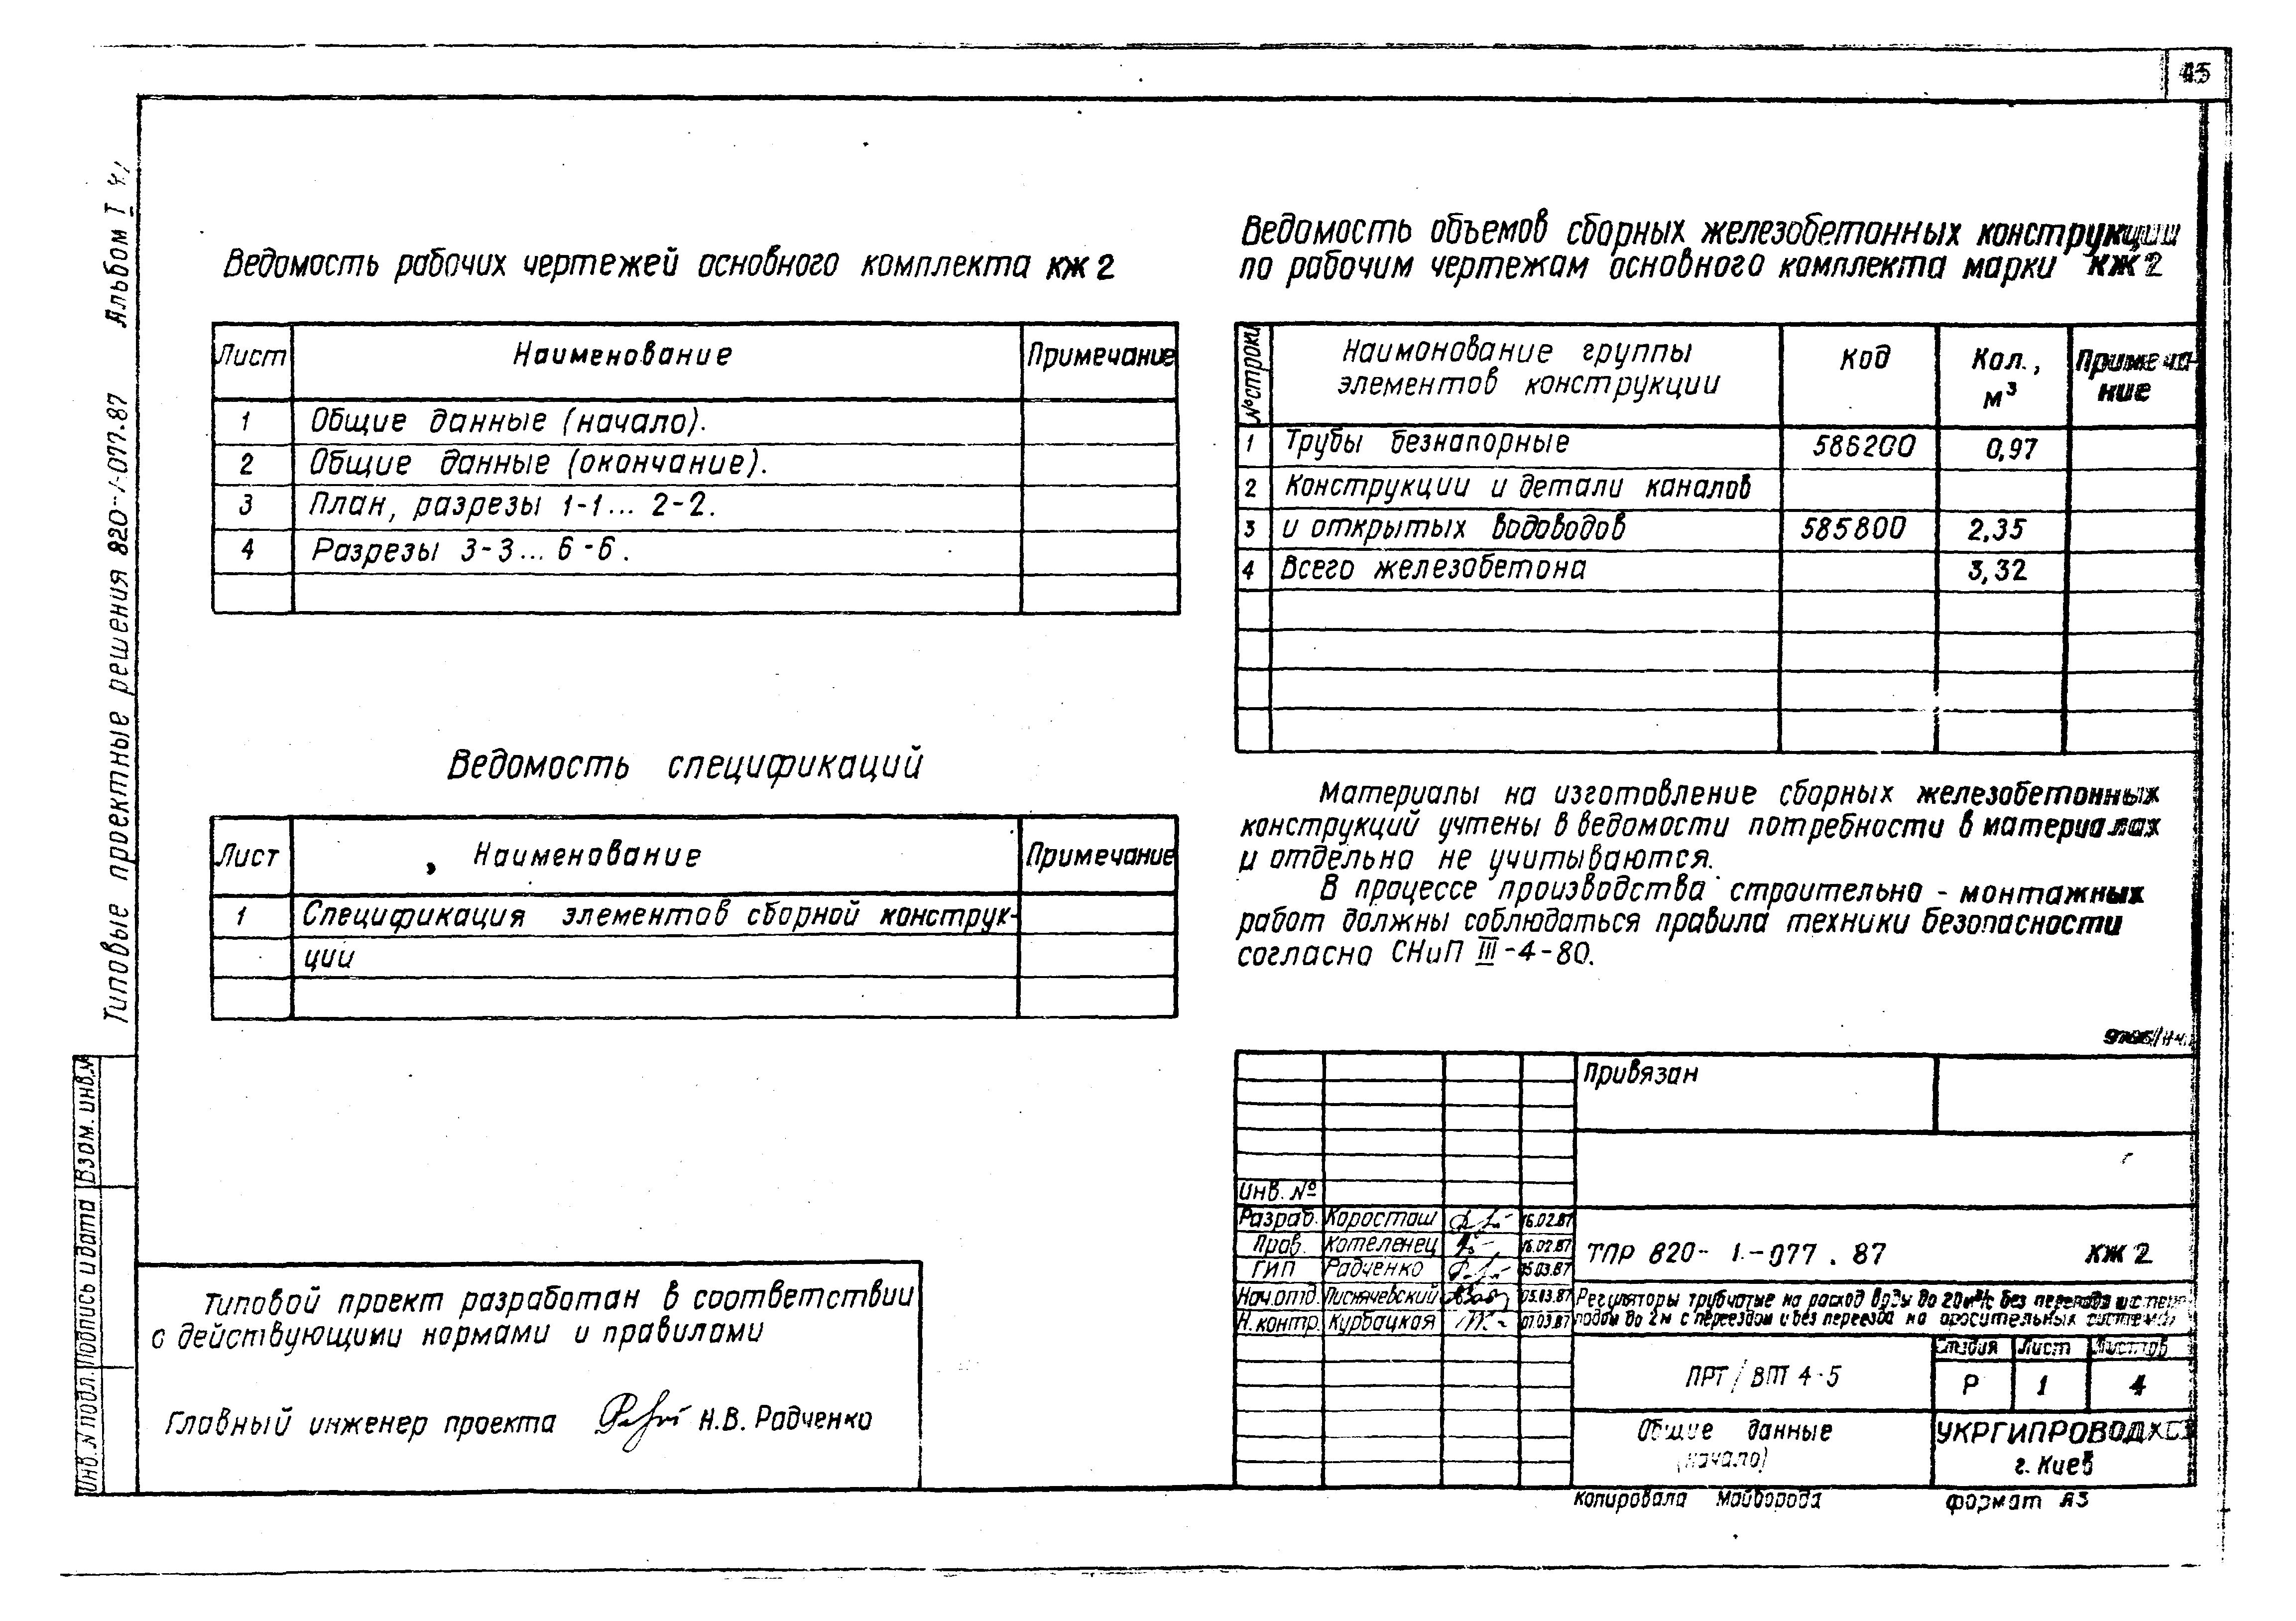 45
Альбом I
Типовые проектные решения 820-1-077.87
Взам. инв.№
Подпись и дата
Инв. № подл.
Ведомость рабочих чертежей основного комплекта КЖ 2
Лист Наименование Примечание
1 Общие данные (начало).
2 Общие данные (окончание).
3 План, разрезы 1-1... 2-2.
4 Разрезы 3-3... 6-6.
Ведомость спецификаций
Лист Наименование Примечание
1 Спецификация элементов сборной конструк-
ции
Типовой проект разработан в соответствии
с действующими нормами и правилами
Главный инженер проекта Н.В. Радченко
Ведомость объемов сборных железобетонных конструкции
по рабочим чертежам основного комплекта марки КЖ 2
№ строки
Наимонование группы
элементов конструкции
Код
Кол.,
м³
Примеча-
ние
1 Трубы безнапорные 586200 0,97
2 Конструкции и детали каналов
3 и открытых водоводов 585800 2,35
4 Всего железобетона 3,32
Материалы на изготовление сборных железобетонных
конструкций учтены в ведомости потребности в материалах
и отдельно не учитываются.
В процессе производства строительно - монтажных
работ должны соблюдаться правила техники безопасности
согласно СНиП III-4-80.
Привязан
Инв. №
Разраб. Коросташ 16.02.87
Пров. Котеленец 16.02.87
ГИП Радченко 05.03.87
Нач.отд. Лиснячевский 05.03.87
Н.контр. Курбацкая 07.03.87
ТПР 820- 1.-077 . 87 КЖ 2
Регуляторы трубчатые на расход воды до 20м³/с без перепада и с пере-
падом до 2м с переездом и без переезда на оросительных системах
ПРТ / ВПТ 4-5
Стадия Лист Листов
Р 1 4
Общие данные
(начало)
УКРГИПРОВОДХОЗ
г. Киев
Копировала Майборода формат А3